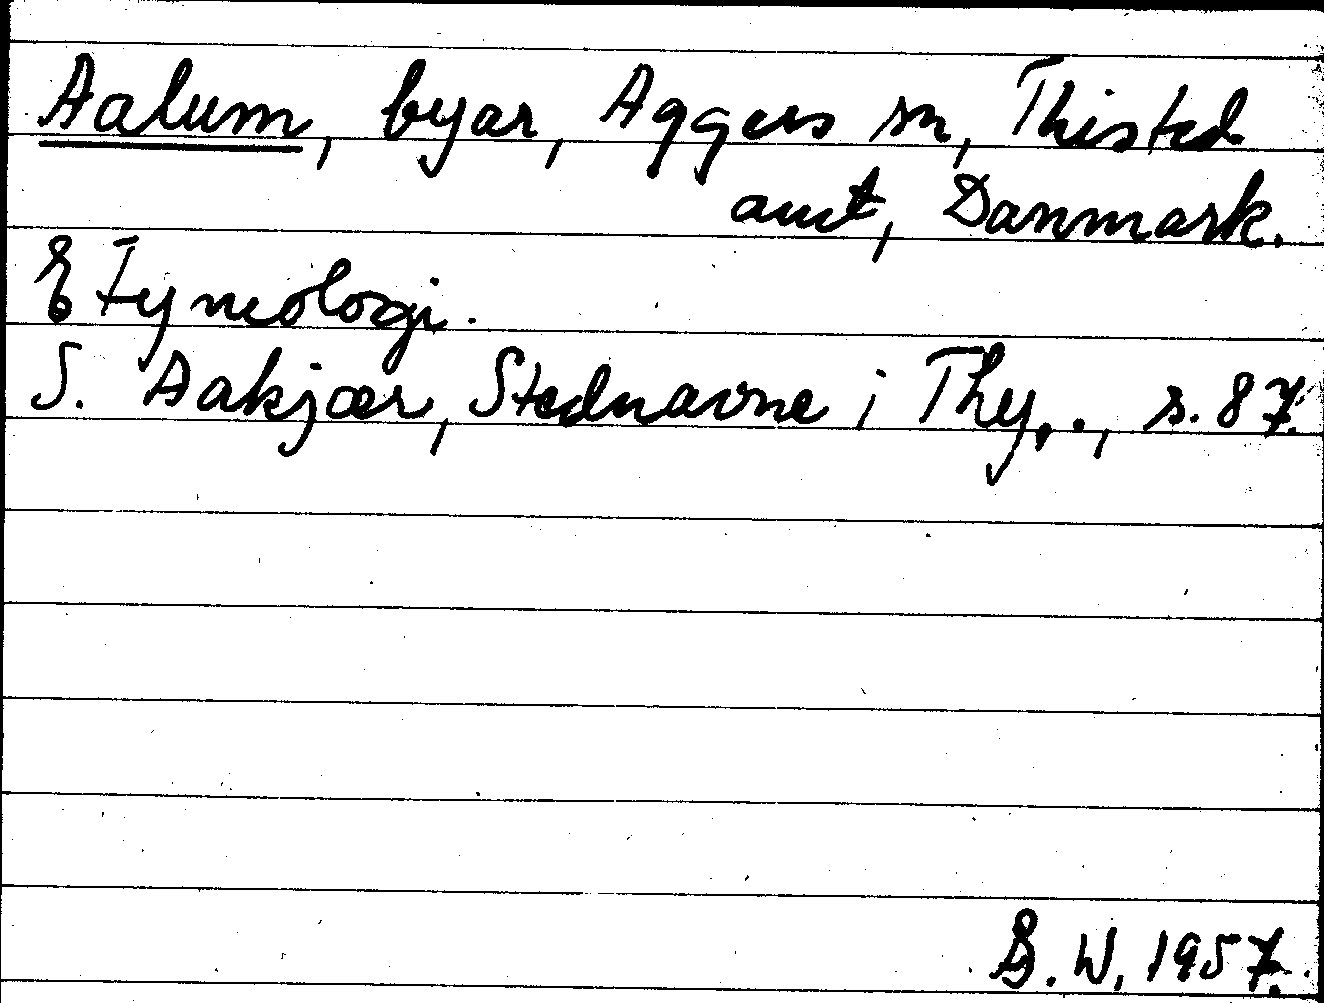 Aalum, byar, Aggers sn, Thisted
amt, Danmark.
Etymologi.
S. Aakjær, Stednavne i Thy.., s. 87.
S. W. 1957.